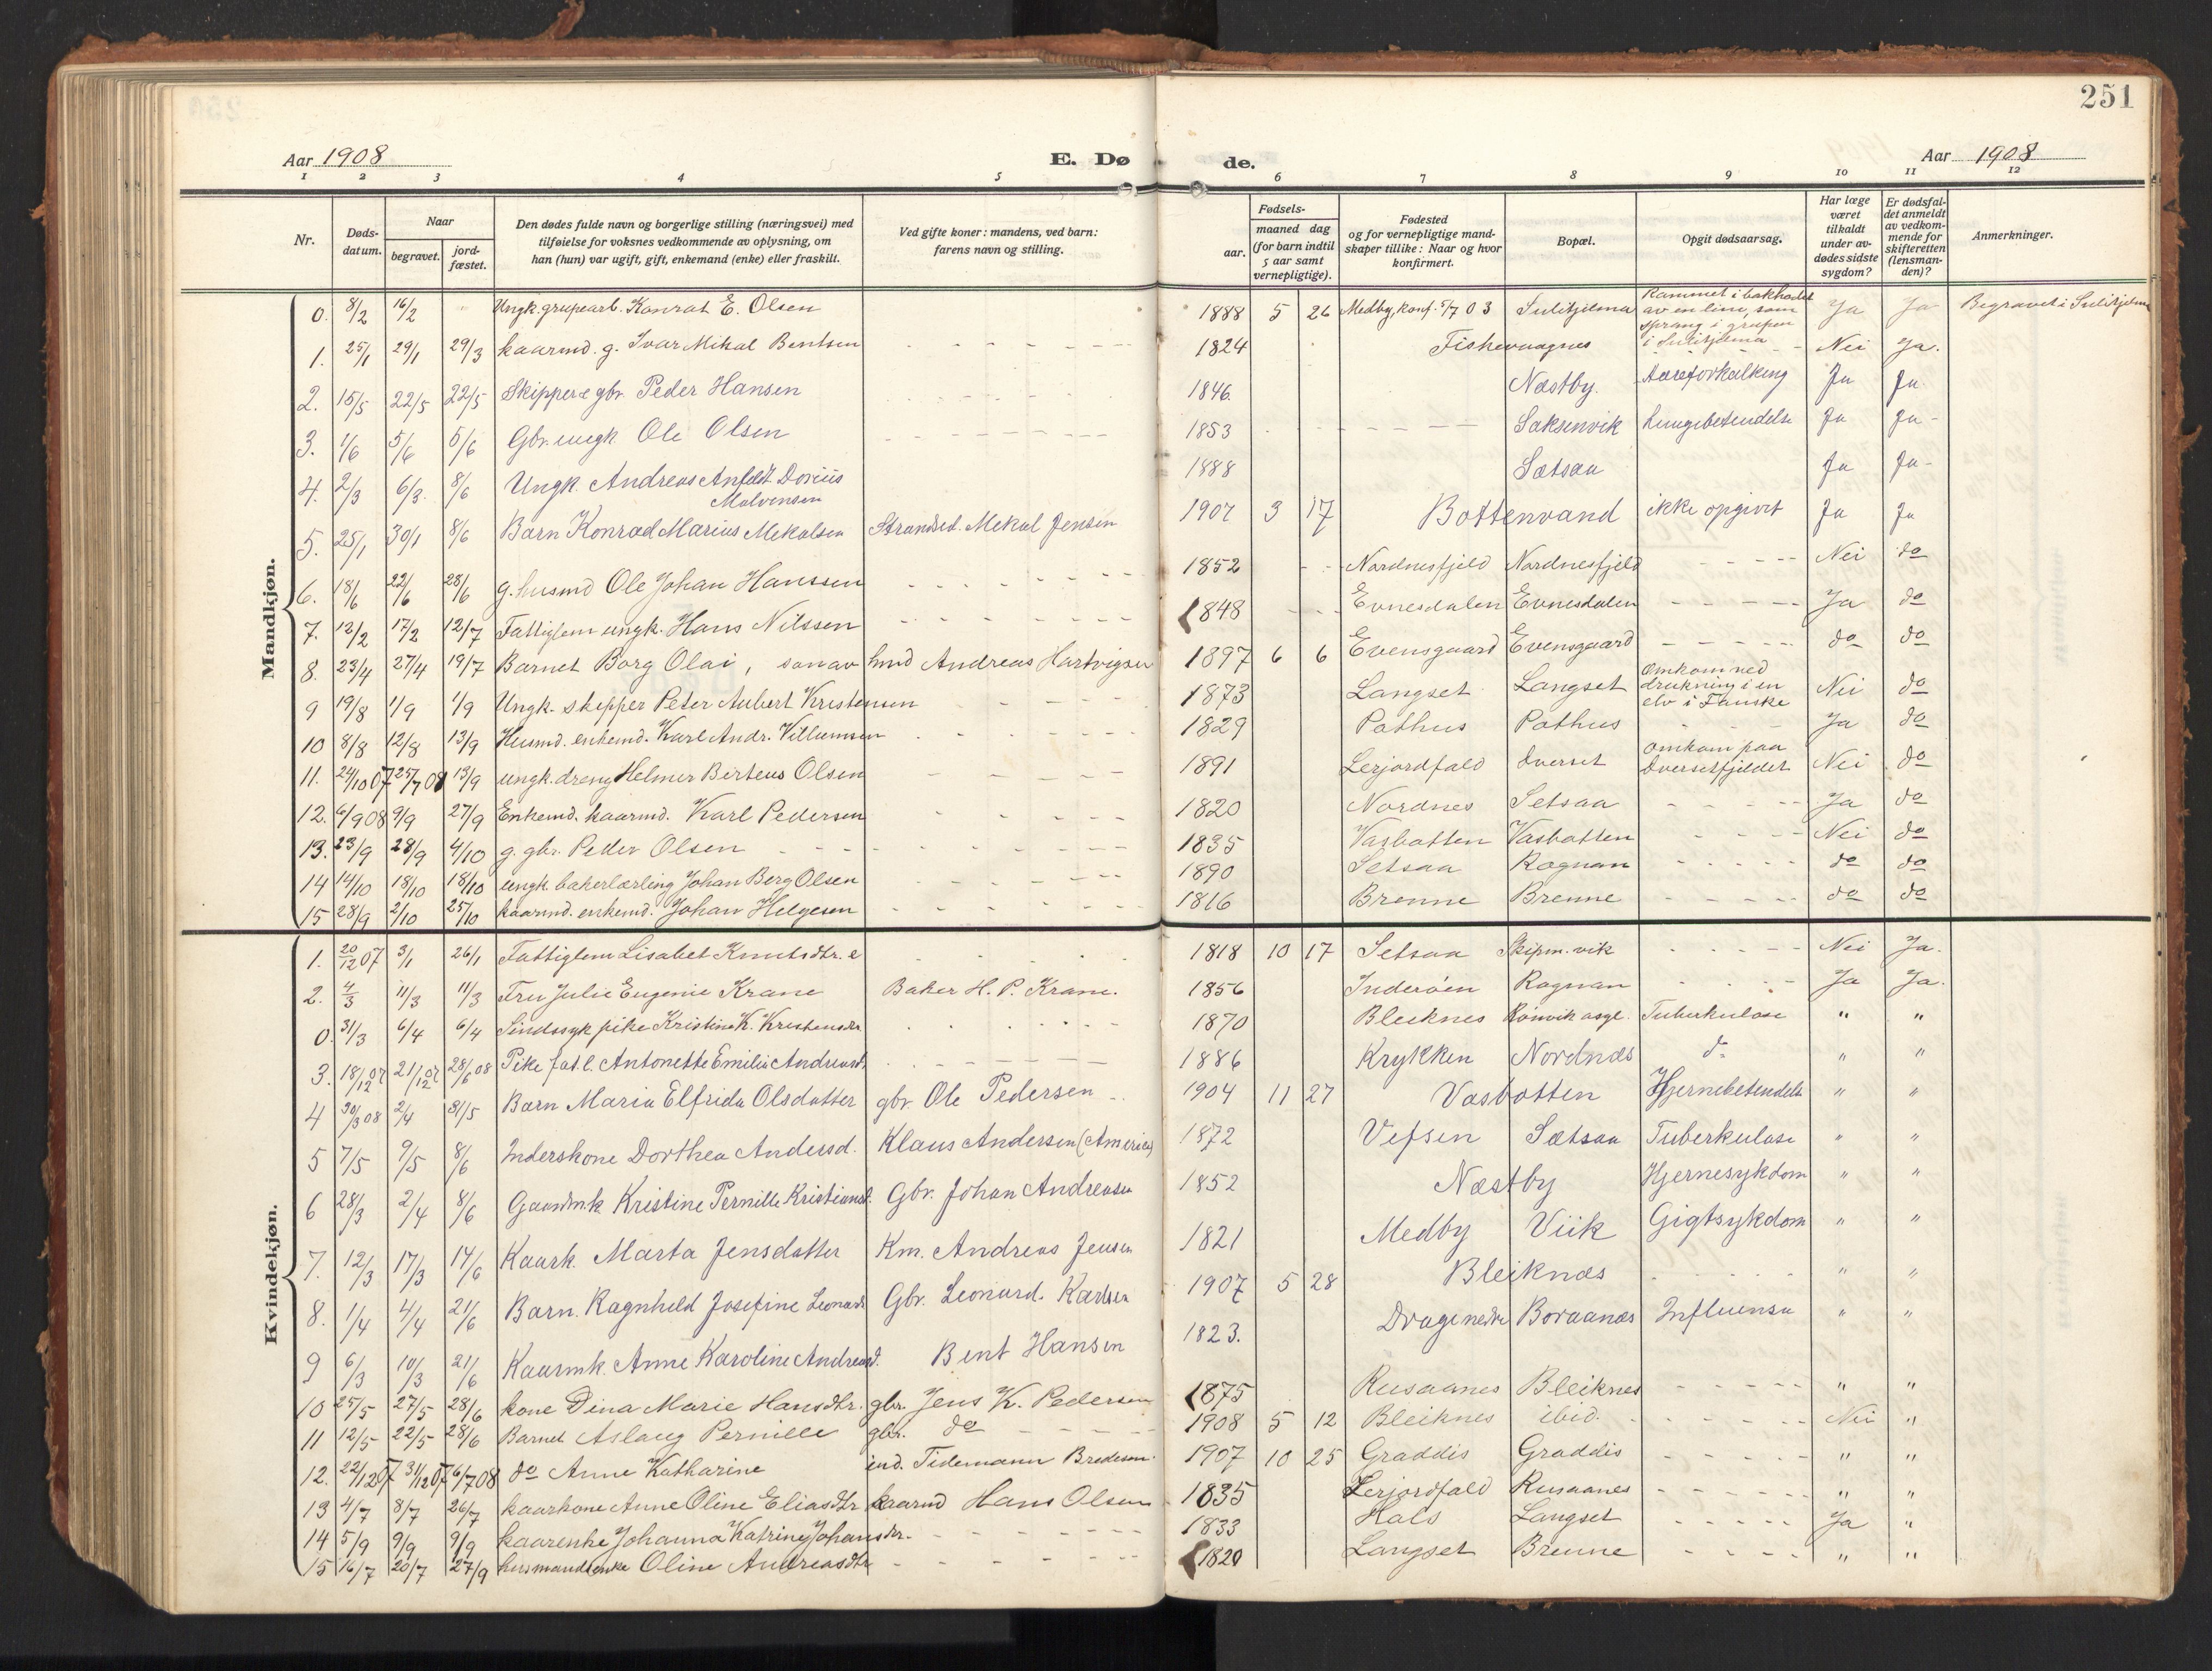 251
Aar 1908
E. Døde.
Aar 1908
1 2 3 4 5 6 7 8 9 10 11 12
Nr.
Døds-datum.
Naar
begravet.
jord-fæstet.
Den dødes fulde navn og borgerlige stilling (næringsvei) med
tilføielse for voksnes vedkommende av oplysning, om
han (hun) var ugift, gift, enkemand (enke) eller fraskilt.
Ved gifte koner: mandens, ved barn:
farens navn og stilling.
Fødsels-
aar.
maaned dag
(for barn indtil
5 aar samt
vernepligtige).
Fødested
og for vernepligtige mand-
skaper tillike: Naar og hvor
konfirmert.
Bopæl.
Opgit dødsaarsag.
Har læge
været
tilkaldt
under av-
dødes sidste
sygdom?
Er dødsfal-
det anmeldt
av vedkom-
mende for
skifteretten
(lensman-
den)?
Anmerkninger.
Mandkjøn.
0. 8/2 16/2 Ungk. grupearb. Konrat E. Olsen 1888 5 26 Medby, konf. 5/7 03 Sulitjelma Rammet i bakhodet av en line, som sprang i grupen i Sulitjelma Ja Ja Begravet i Sulitjelma
1. 25/1 29/1 29/3 kaarmd. g. Ivar Mikal Bentsen 1824 Fiskevaagnes Nei Ja.
2. 15/5 22/5 22/5 Skipper e gbr. Peder Hansen 1846. Næstby. Aareforkalking Ja Ja
3. 1/6 5/6 5/6 Gbr. ungk Ole Olsen 1853 Saksenvik Lungebetendelse Ja Ja-
4. 2/3 6/3. 8/6 Ungk. Andreas Anfeldt Dorius Malvensen 1888 Sætsaa Ja Ja-
5. 25/1 30/1 8/6 Barn Konrad Marius Mekalsen Strandsd. Mekal Jensen 1907 3 17 Bottenvand ikke opgivet Ja Ja
6. 18/6 22/6 28/6 g. husmd Ole Johan Hanssen 1852 Nordnesfjeld Nordnesfjeld Nei do
7. 12/2 17/2 12/7 Fattiglem ungk. Hans Nilssen 1848 Evnesdalen Evnesdalen Ja do
8. 23/4 27/4 19/7 Barnet Borg Olai, søn av hmd Andreas Hartvigsen 1897 6 6 Evensgaard Evensgaard do do
9 19/8 1/9 1/9 Ungk. skipper Peter Aubert Kristensen 1873 Langset Langset Omkom ved drukning i en elv i Fauske Nei do
10 8/8 12/8 13/9 Husmd. enkemd. Karl Andr. Villumsen 1829 Pothus Pothus Ja do
11. 24/10 07 25/7 08 13/9 ungk. dreng Helmer Berteus Olsen 1891 Lerjordfald Dverset omkom paa Dversetfjeldet Nei do
12. 6/9 08 9/9 27/9 Enkemd. kaarmd. Karl Pedersen 1820 Nordnes Setsaa Ja do
13. 23/9 28/9 4/10 g. gbr. Peder Olsen 1835 Vasbotten Vasbotten Nei do
14 14/10 18/10 18/10 ungk. bakerlærling Johan Berg Olsen 1890 Setsaa Rognan do do
15 28/9 2/10 25/10 kaarmd. enkemd. Johan Helgesen 1816 Brenne Brenne do do
Kvindekjøn.
1. 20/12 07 3/1 26/1 Fattiglem Lisabet Knutsdtr. e 1818 10 17 Setsaa Skipm. vik Nei Ja.
2. 4/3 11/3 11/3 Fru Julie Eugenie Krane Baker H. P. Krane. 1856 Inderøen Rognan Ja Ja.
0. 31/3 6/4 6/4 Sindssyk pike Kristine K. Kristensdtr 1870 Bleiknes Rønvik asyl. Tuberkulose " "
3. 18/12 07 21/12 07 28/6 08 Pike fatl. Antonette Emilie Andreasd. 1886 Krykken Nordnæs do " "
4 30/3 08 2/4 31/5 Barn Maria Elfrida Olsdatter gbr. Ole Pedersen 1904 11 27 Vasbotten Hjernebetendelse " "
5 7/5 9/5 8/6 Inderskone Dorthea Andersd. Klaus Andersen (Amerika) 1872 Vefsen Sætsaa Tuberkulose " "
6 28/3 2/4 8/6 Gaardmk. Kristine Pernille Kristiansd. Gbr. Johan Andreasen 1852 Næstby Hjernesykdom " "
7. 12/3 17/3 14/6 Kaark. Marta Jensdatter Km. Andreas Jensen 1821 Medby Viik Gigtsykdom " "
8. 1/4 4/4 21/6 Barn. Ragnhild Josefine Leonardd. Gbr. Leonard. Karlsen 1907 5 28 Bleiknæs " "
9 6/3 10/3 21/6 Kaarmk. Anne Karoline Andreasd. Bent Hansen 1823. Drage nedre Boraanæs Influensa " "
10 25/5 27/5 28/6 kone Dina Marie Hansdtr. gbr. Jens K. Pedersen 1875 Rusaanes Bleiknes " "
11 12/5 22/5 28/6 Barnet Aslaug Pernille gbr. do 1908 5 12 Bleiknes ibid. Nei "
12. 22/12 07 31/12 07 6/7 08 do Anne Katharine ind. Tidemann Bredesen 1907 10 25 Graddis Graddis " "
13 4/7 8/7 26/7 kaarkone Anne Oline Eliasdtr kaarmd Hans Olsen 1835 Lerjordfald Rusaanes " "
14 5/9 9/9 9/9 kaarenke Johanna Katrine Johansdtr. 1833 Hals Langset Ja "
15 16/7 20/7 27/9 husmandsenke Oline Andreasdtr 1820 Langset Brenne " "